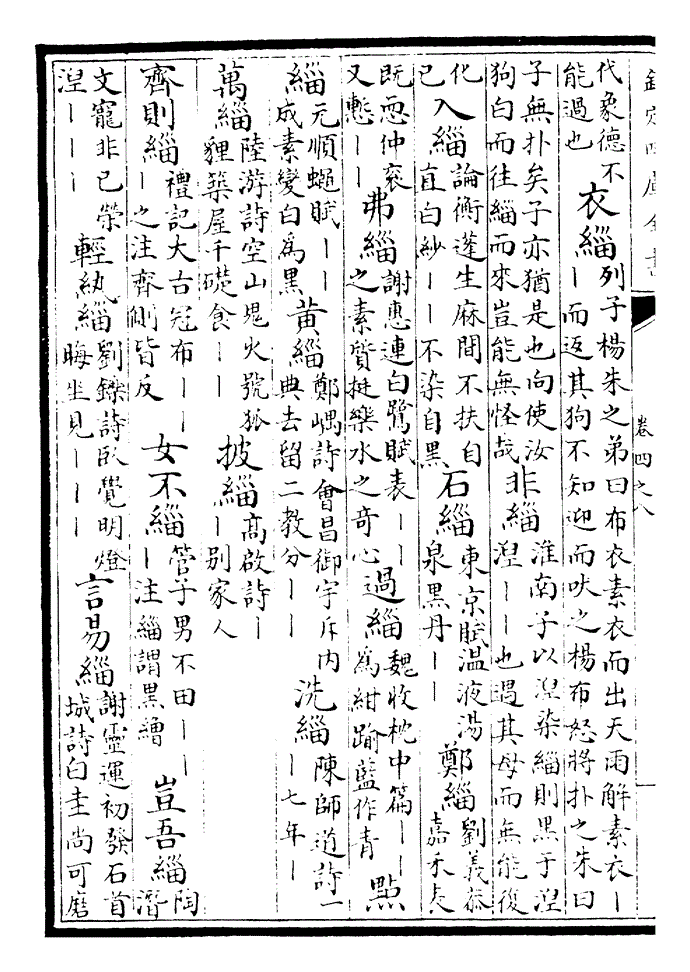 欽定四庫全書
卷四之八
代象德不
能過也
衣緇
列子楊朱之弟曰布衣素衣而出天雨解素衣丨
丨而返其狗不知迎而吠之楊布怒將扑之朱曰
子無扑矣子亦猶是也向使汝
狗白而往緇而來豈能無怪哉
非緇
淮南子以湼染緇則黒于湼
湼丨丨也遇其母而無能復
化
已
入緇
論衡蓬生麻間不扶自
直白紗丨丨不染自黑
石緇
東京賦温液湯
泉黒丹丨丨
鄭緇
劉義恭
嘉禾
既恧仲衮
又慙丨丨
弗緇
謝惠連白鷺賦表丨丨
之素質挺樂水之奇心
過緇
魏收枕中篇丨丨
為紺踰藍作青
點
緇
元順蠅賦丨丨
成素變白為黑
黄緇
鄭嵎詩會昌御宇斥内
典去留二教分丨丨
洗緇
陳師道詩一
丨七年丨
萬緇
陸游詩空山火號狐
狸築屋千礎食丨丨
披緇
高啟詩丨
丨别家人
齊則緇
禮記大古冠布丨丨
丨之注齊側皆反
女不緇
管子男不田丨丨
丨注緇謂黒繒
豈吾緇
陶
潛
文寵非已榮
湼丨丨丨
輕紈緇
劉鑠詩臥覺明燈
晦坐見丨丨丨
言易緇
謝靈運初發石首
城詩白圭尚可磨